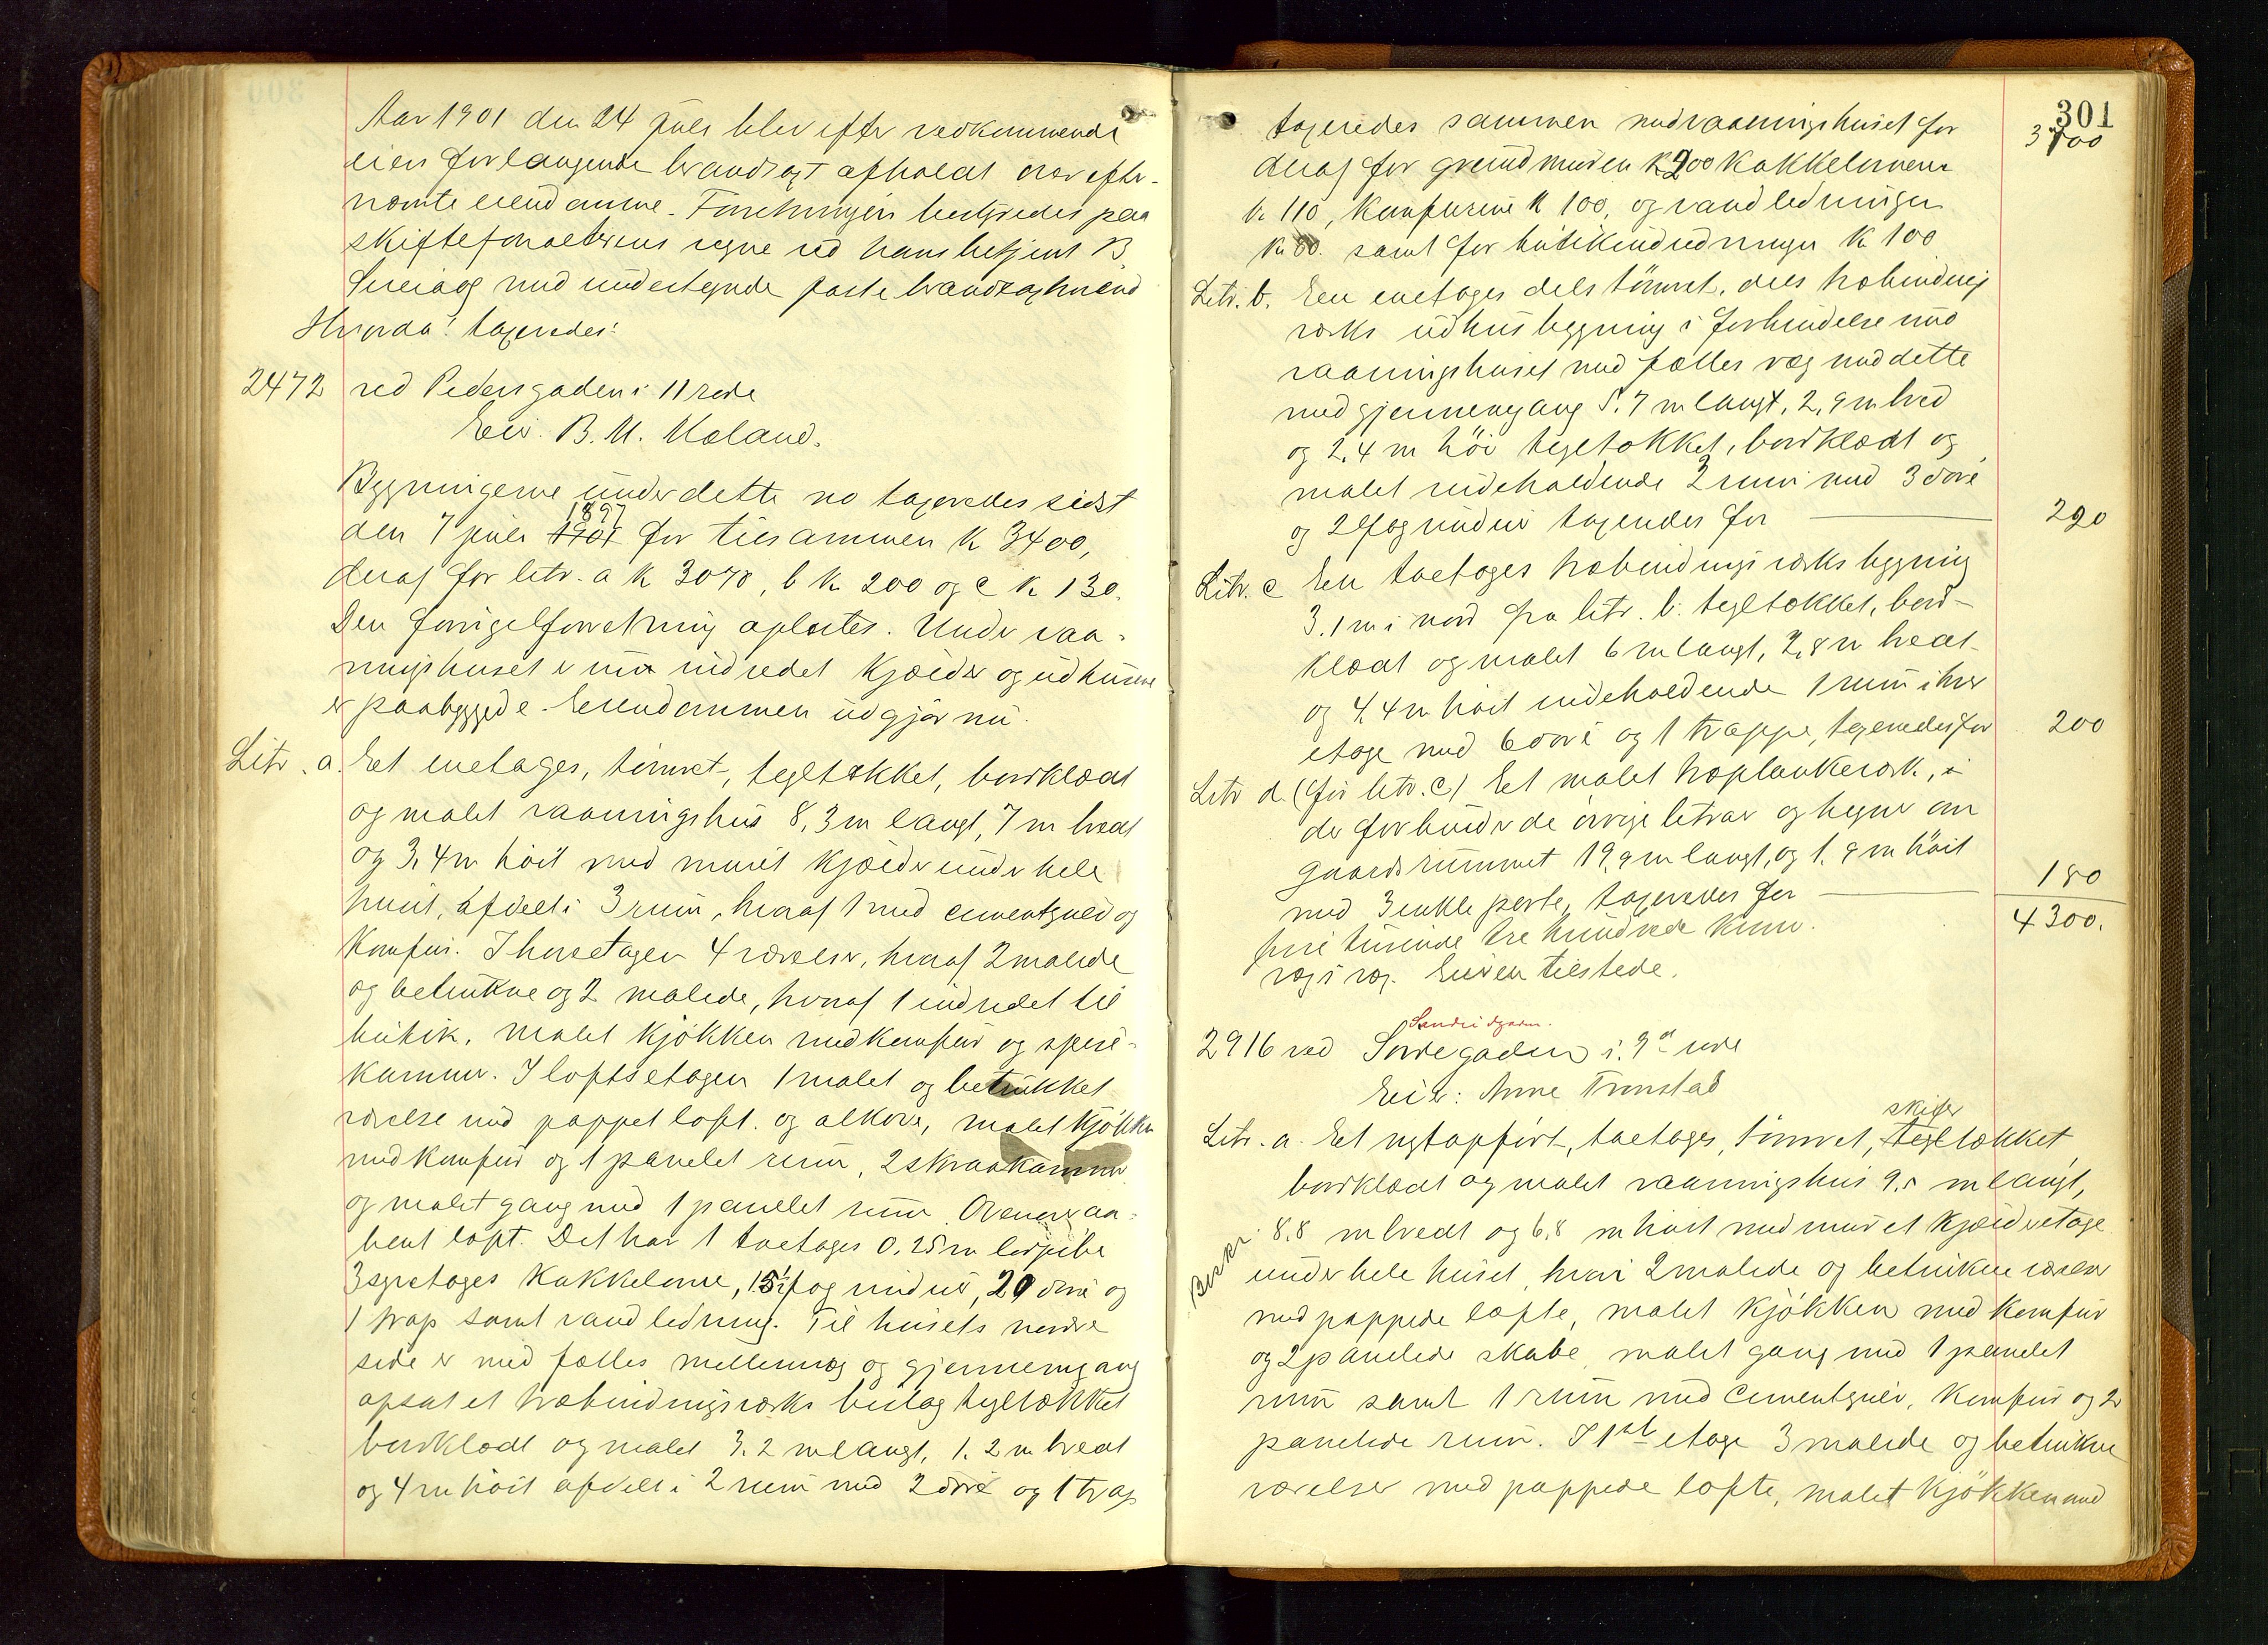 Aar 1901 den 24 juli blev efter vedkommende
eiers forlangende brandtaxt afholdt over efter-
nævnte eiendomme. Forretningen bestyredes paa
skifteforvalterens vegne ved hans betjent B.
med undertegnede faste brandtaxtmænd
Hvorda! taxeredes:
2472 ved Pedersgaden i 11 rode
Eier. B. M. Mæland.
Bygningerne under dette no taxeredes sidst
den 7 juli 1897 for tilsammen k 3400,
deraf for litr. a k 3070, b k 200 og c k 130.
Den forrige forretning oplæstes. Under vaa-
ningshuset er nu indredet kjælder og udhusene
er paabyggede. Eiendommen udgjør nu.
Litr. a. Et enetages, tømret, tegltækket, bordklædt
og malet vaaningshus 8,3 m langt, 7 m bredt
og 3,4 m høit med muret kjælder under hele
huset, afdelt i 3 rum, hvoraf 1 med cementgulv og
komfur. I 1ste etage 4 værelser, hvoraf 2 malede
og betrukne og 2 malede, hvoraf 1 indredet til
butik, malet kjøkken med komfur og spise-
kammer. I loftsetagen 1 malet og betrukket
værelse med pappet loft og alkove, malet kjøkken
med komfur og 1 panelet rum, 2 skraakammer
og malet gang med 1 panelet rum. Ovenover aa-
bent loft. Det har 1 toetages 0,25 m løbs pibe
3 syretages kakkelovne, 15½ fag vinduer, 20 døre og
1 trap samt vandledning. Til husets nordre
side er med fælles mellemvæg og gjennemgang
opsat et træbindingsværks bislag tegltækket
bordklædt og malet 3.2 m langt, 1.2 m bredt
og 4 m høit afdelt i 2 rum med 2 døre og 1 trap
301
taxeredes sammen med vaaningshuset for 3700
deraf for grundmuren k 200 kakkelovnene
k 110, komfurene k 100, og vandledningen
k 80. samt for butikindredningen k 100
Litr. b. En enetages dels tømret, dels træbindings
værks udhusbygning i forbindelse med
vaaningshuset med fælles væg med dette
med gjennemgang 5.7 m langt, 2,9 m bred
og 2.4 m høi tegltækket, bordklædt og
malet indeholdende 3 rum med 3 døre
og 2 fag vinduer taxeredes for 220
Litr. c En toetages træbindingsværks bygning
3.1 m i nord fra litr. b. tegltækket, bord-
klædt og malet 6 m langt, 2,8 m bredt
og 4,4 m høit indeholdende 1 rum i hver
etage med 6 døre og 1 trappe, taxeredes for 200
Litr d. (før litr. c) Et malet træplankeværk,
der forbinder de øvrige litraer og hegner om
gaardsrummet 19,9 m langt, og 1.9 m høit
med 3 enkle porte, taxeredes for 180
fire tusinde tre hundrede kroner. 4300.
væg i væg. Eieren tilstede.
Søndre dgaden.
2916 ved Smedegaden i 9de rode
Eier: Anne Tronstad
skifer
Litr. a. Et nytopført, toetages, tømret, tegltækket,
bordklædt og malet vaaningshus 9.5 m langt,
8.8 m bredt og 6,8 m høit med muret kjælderetage
under hele huset, hvori 2 malede og betrukne værelser
med pappede lofte, malet kjøkken med komfur
og 2 panelede skabe, malet gang med 1 panelet
rum samt 1 rum med cementgulv, komfur og 2
panelede rum. I 1ste etage 3 malede og betrukne
værelser med pappede lofte, malet kjøkken med